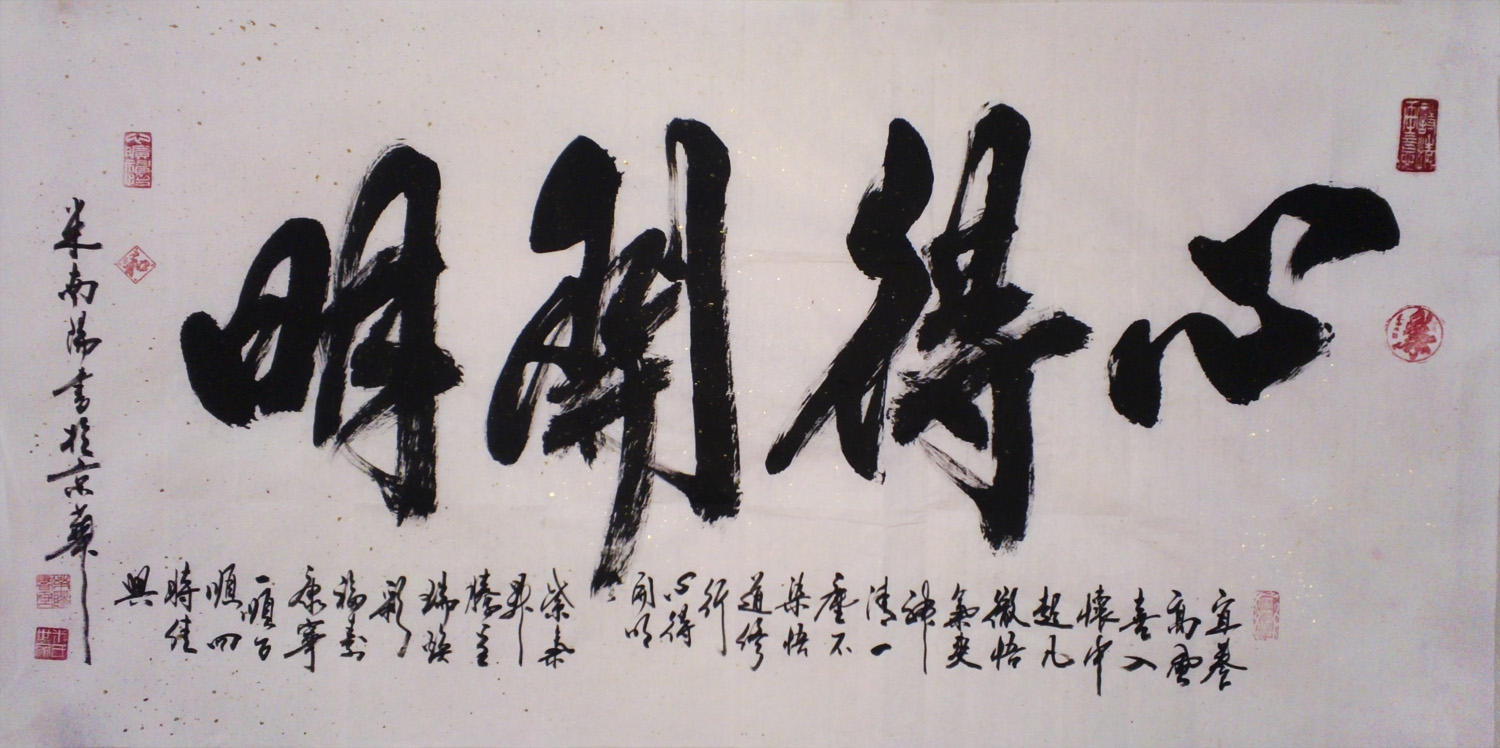 心得開明
高
喜入
懷中
超凡
徹悟
氣爽
神
清一
塵不
染悟
道修
行
心得
開明
紫
昇
騰呈
瑞
彩
福壽
康寧
一順百
順四
時佳
興
米南陽書於京華